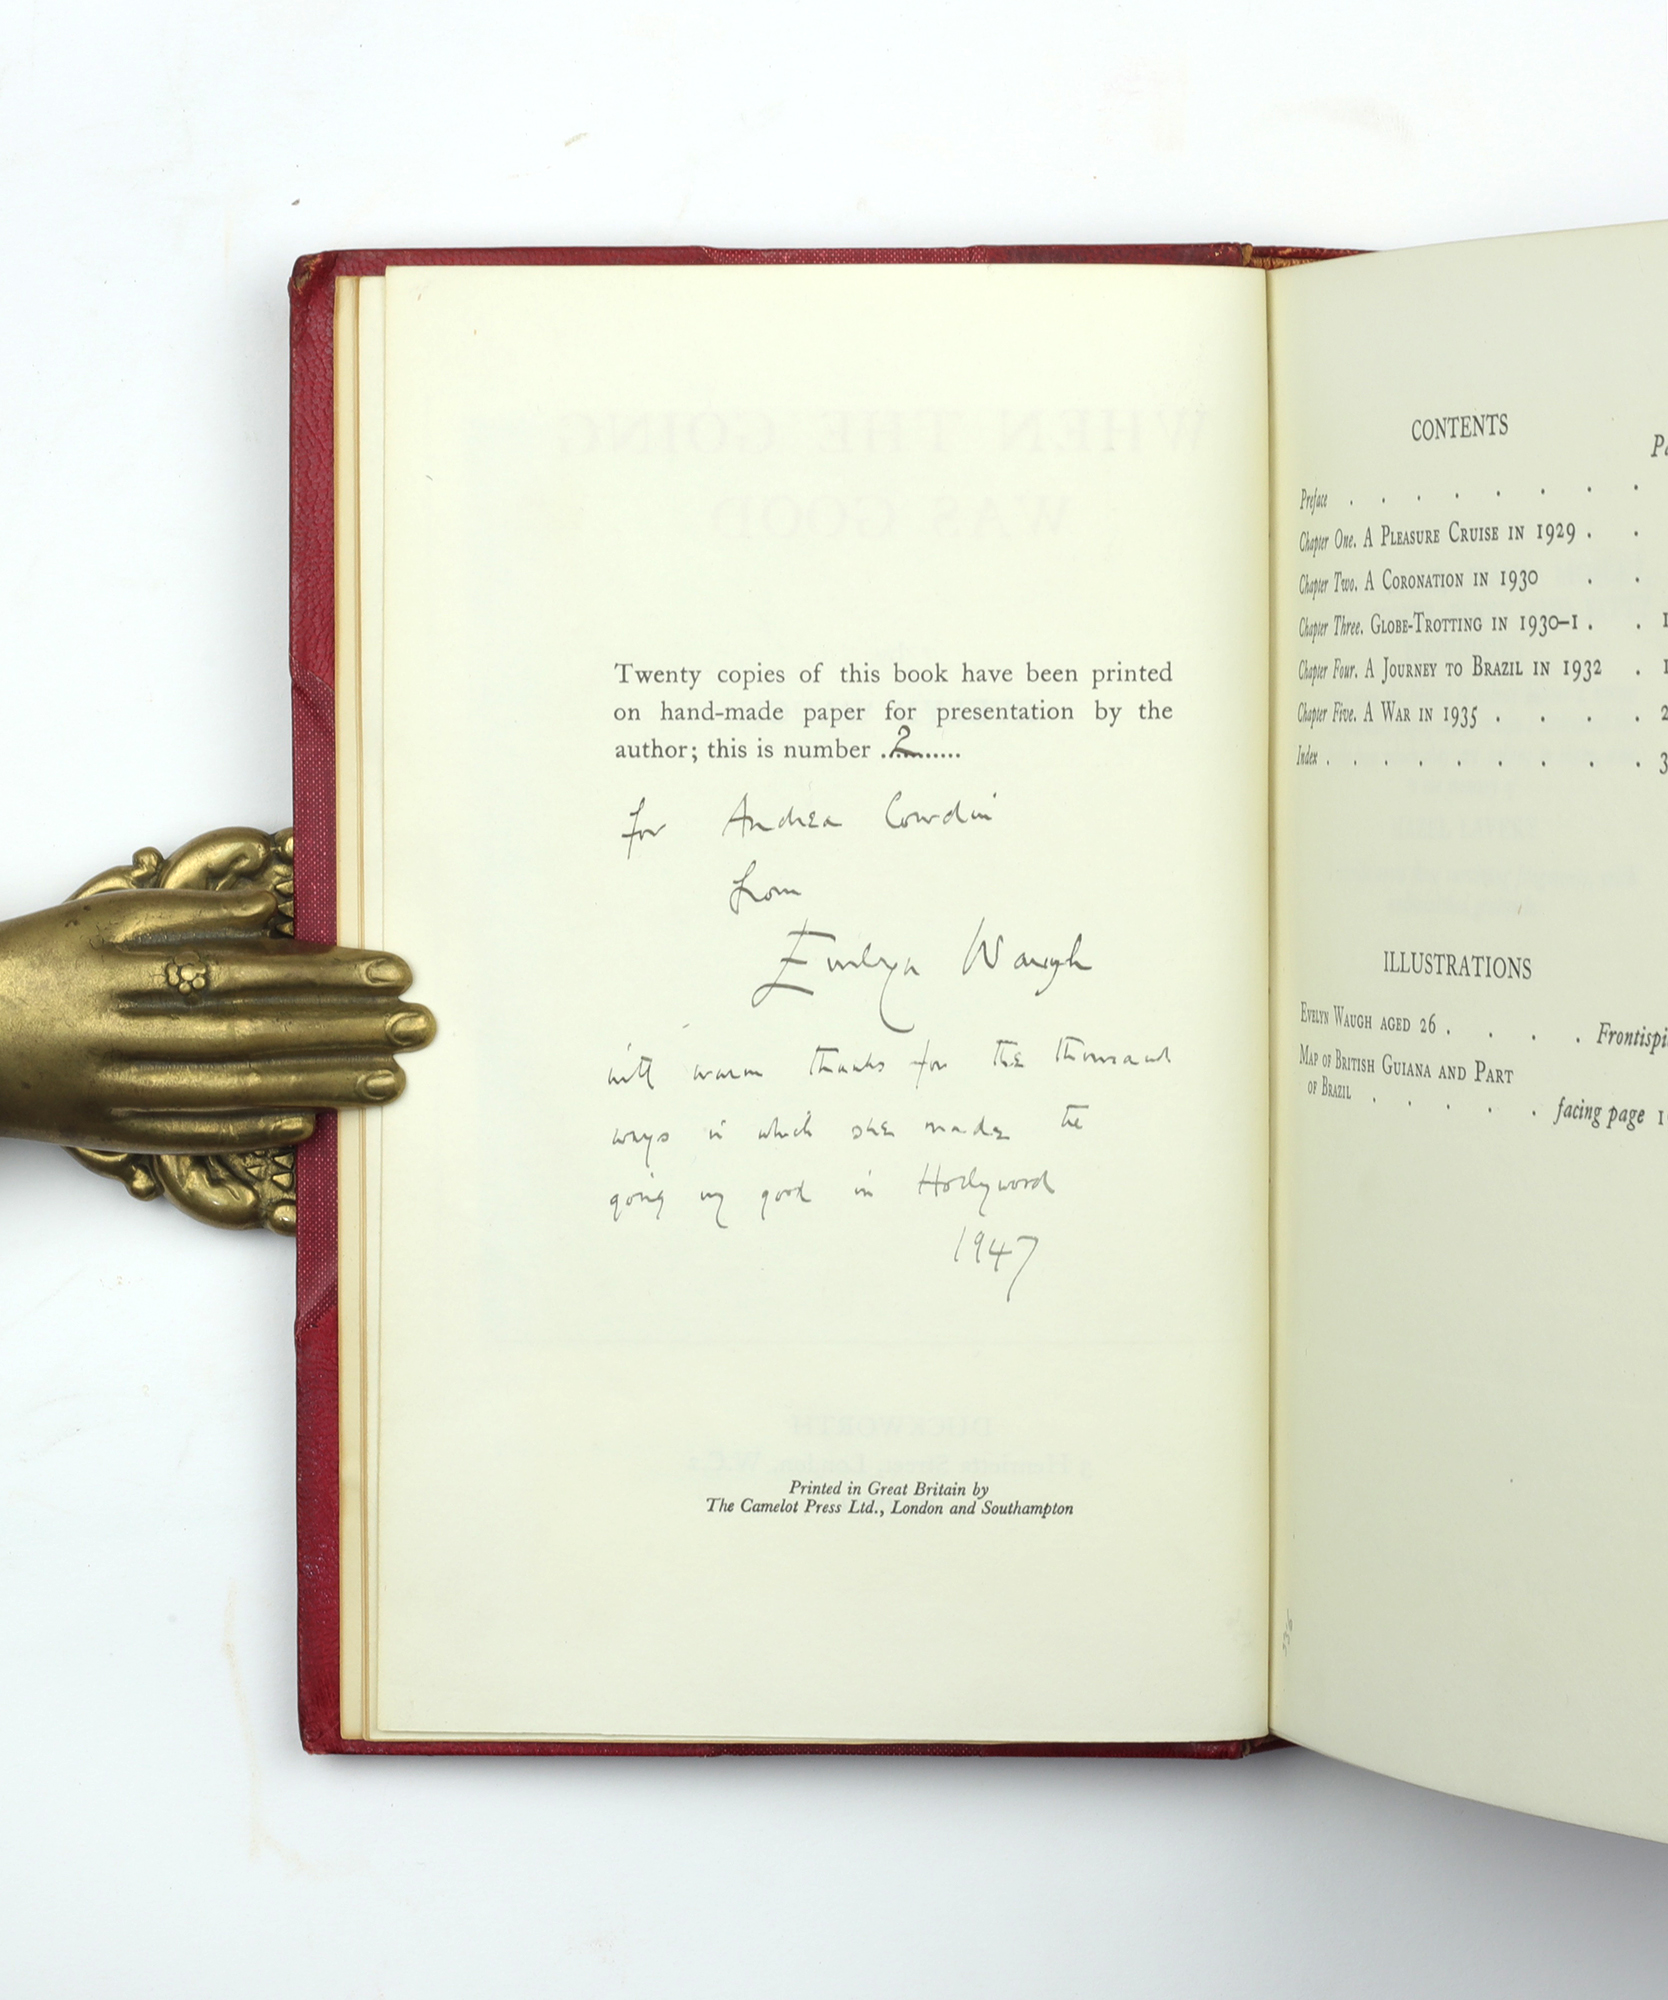 Twenty copies of this book have been printed
on hand-made paper for presentation by the
author; this is number ..2......
for Andrea Cowdin
from
Evelyn Waugh
with warm thanks for the thousand
ways in which she made the
going very good in Hollywood
1947
Printed in Great Britain by
The Camelot Press Ltd., London and Southampton
CONTENTS
Preface . . . . . . . .
Chapter One. A Pleasure Cruise in 1929 . .
Chapter Two. A Coronation in 1930 . .
Chapter Three. Globe-Trotting in 1930–1 . .
Chapter Four. A Journey to Brazil in 1932 .
Chapter Five. A War in 1935 . . . .
Index . . . . . . . .
ILLUSTRATIONS
Evelyn Waugh aged 26 . . . . Frontispi
Map of British Guiana and Part
of Brazil . . . . . facing page